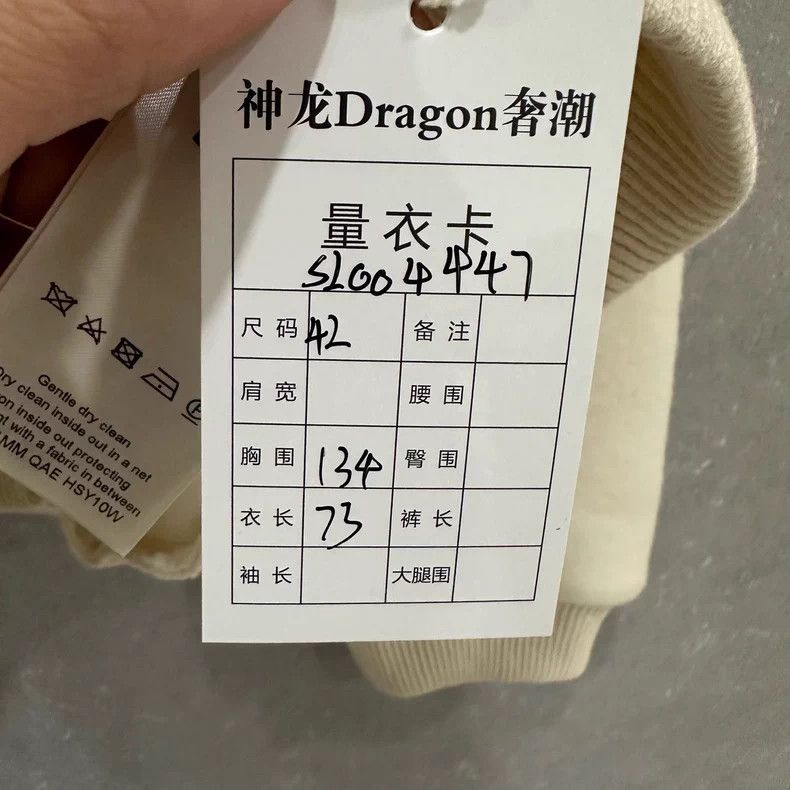 神龙Dragon奢潮
量衣卡
SL004447
尺码 42 备注
肩宽 腰围
胸围 134 臀围
衣长 73 裤长
袖长 大腿围
Gentle dry clean
Dry clean inside out in a net
on inside out protecting
with a fabric in between
MM QAE HSY10W